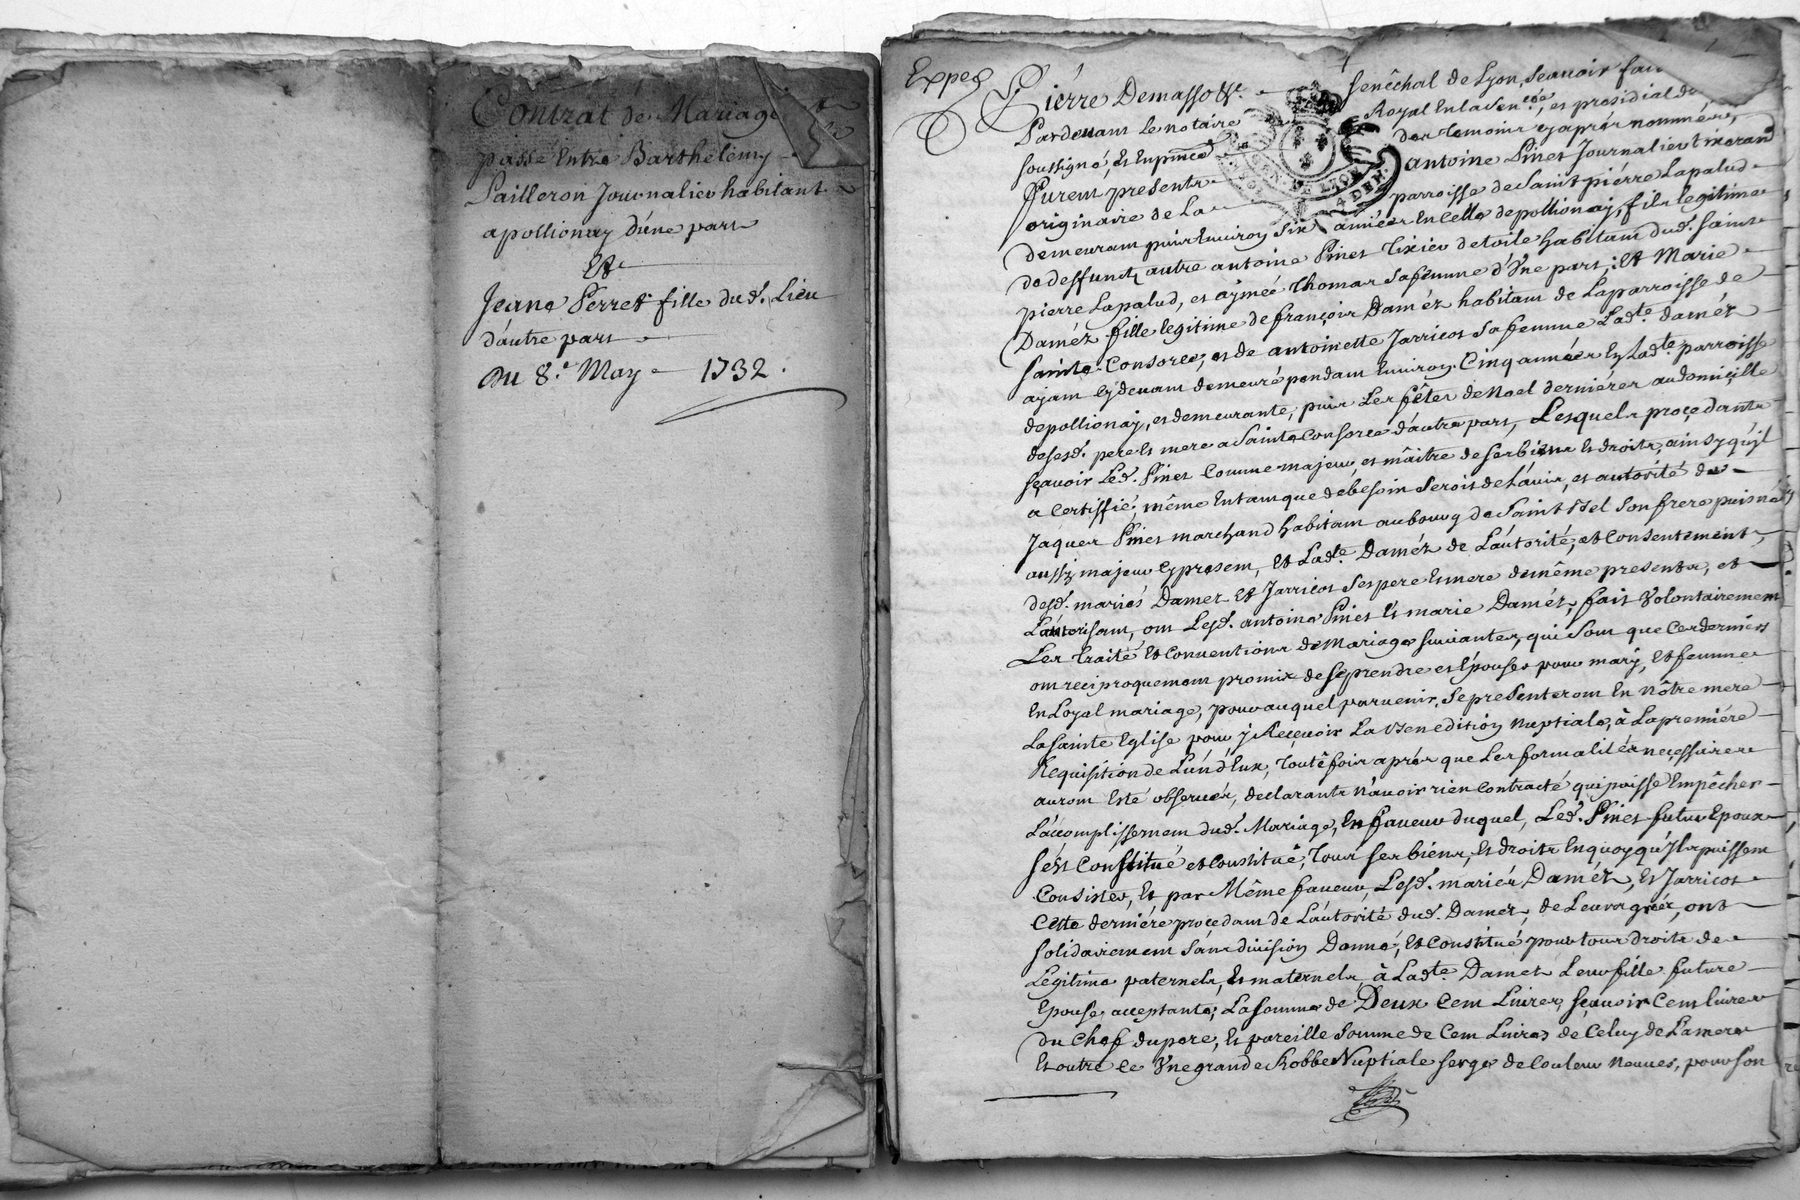 Contrat de Mariage
passé Entre Barthelemy
Pailleron Journalier habitant
a pollionay d'une part
Et
Jeane Perret fille dud. Lieu
d'autre part
Du 8.e May 1732.
Exped
Pierre Demasso &c. Senéchal de Lyon, scavoir fai
Pardevant Le notaire Royal En la Sen.cée, et presidial de
soussigné, et En presce des temoins cy aprés nommés,
Furent presents antoine Pinet Journalier
originaire de La parroisse de Saint pierre Lapalud
GEN. DE LYON
demeurant puis Environ Six années En Celle de pollionay, fils legitime
de deffunct autre antoine Pinet Tixier de toile habitant dud. Saint
pierre Lapalud, et aymée Thomas Sa femme d'Une part; Et Marie
Daméz fille legitime de françois Daméz habitant de La parroisse de
Sainte Consorce, et de antoinette Jarricot Sa femme Lad.te daméz
ayant cydevant demeuré pendant Environ Cinq années En Lad.te parroisse
de pollionay, et demeurante, puis Les fêtes de Noel derniéres au domicille
desesd. pere Et mere a Sainte Consorce d'autre part, Lesquels procedants
sçavoir Led. Pinet Comme majeur, et mâitre de ses biens Et droits, ainsy qu'jl
a Certiffié, même Entant que de besoin Seroit de L'auis, et autorité de
Jaques Pinet marchand habitant au bourg de Saint Bel Son frere puisné
aussy majeur cy present, Et Lad.te Daméz de L'autorité, et Consentement,
desd. mariés Damez Et Jarricot Ses pere Et mere de même presents, et
L'autorisant, ont Lesd. antoine Pinet Et marie Daméz, fait Volontairement
Les traité Et Conuentions de Mariage suiuantes, qui Sont que Ces derniers
ont reciproquement promix de se prendre et Épouser pour mary, Et femme
En Loyal mariage, pour auquel paruenir, Se presenteront En nôtre mere
La Sainte Eglise pour y Receuoir La Benediction Nuptiale, à La premiére
Requisition de L'un d'Eux, toutefois aprés que Les formalités necessaires
auront Esté obseruées, declarants N'auoir rien Contracté qui puisse Empêcher
L'accomplissement dud. Mariage, En faueur duquel, Led. Pinet futur Epoux
S'est Constitué et Constitué, tous ses biens, Et droits En quoy qu'Ils puissent
Consister, Et par Même faueur, Lesd. mariés Daméz, Et Jarricot
Cette derniére procedant de L'autorité dud. Daméz, de Leurs gréz, ont
solidairement Sans diuision Donné, Et Constitué pour tous droits de
Legitime paternels, Et maternels, à Lad.te Damez Leur fille future
Epouse, acceptante; La Somme de Deux Cent Liures, scauoir Cent liures
du chef du pere, Et pareille Somme de Cent Liures de Celuy de La mere
Et outre ce Vne grande Robbe Nuptiale Serge de Couleur Neuues, pour Son